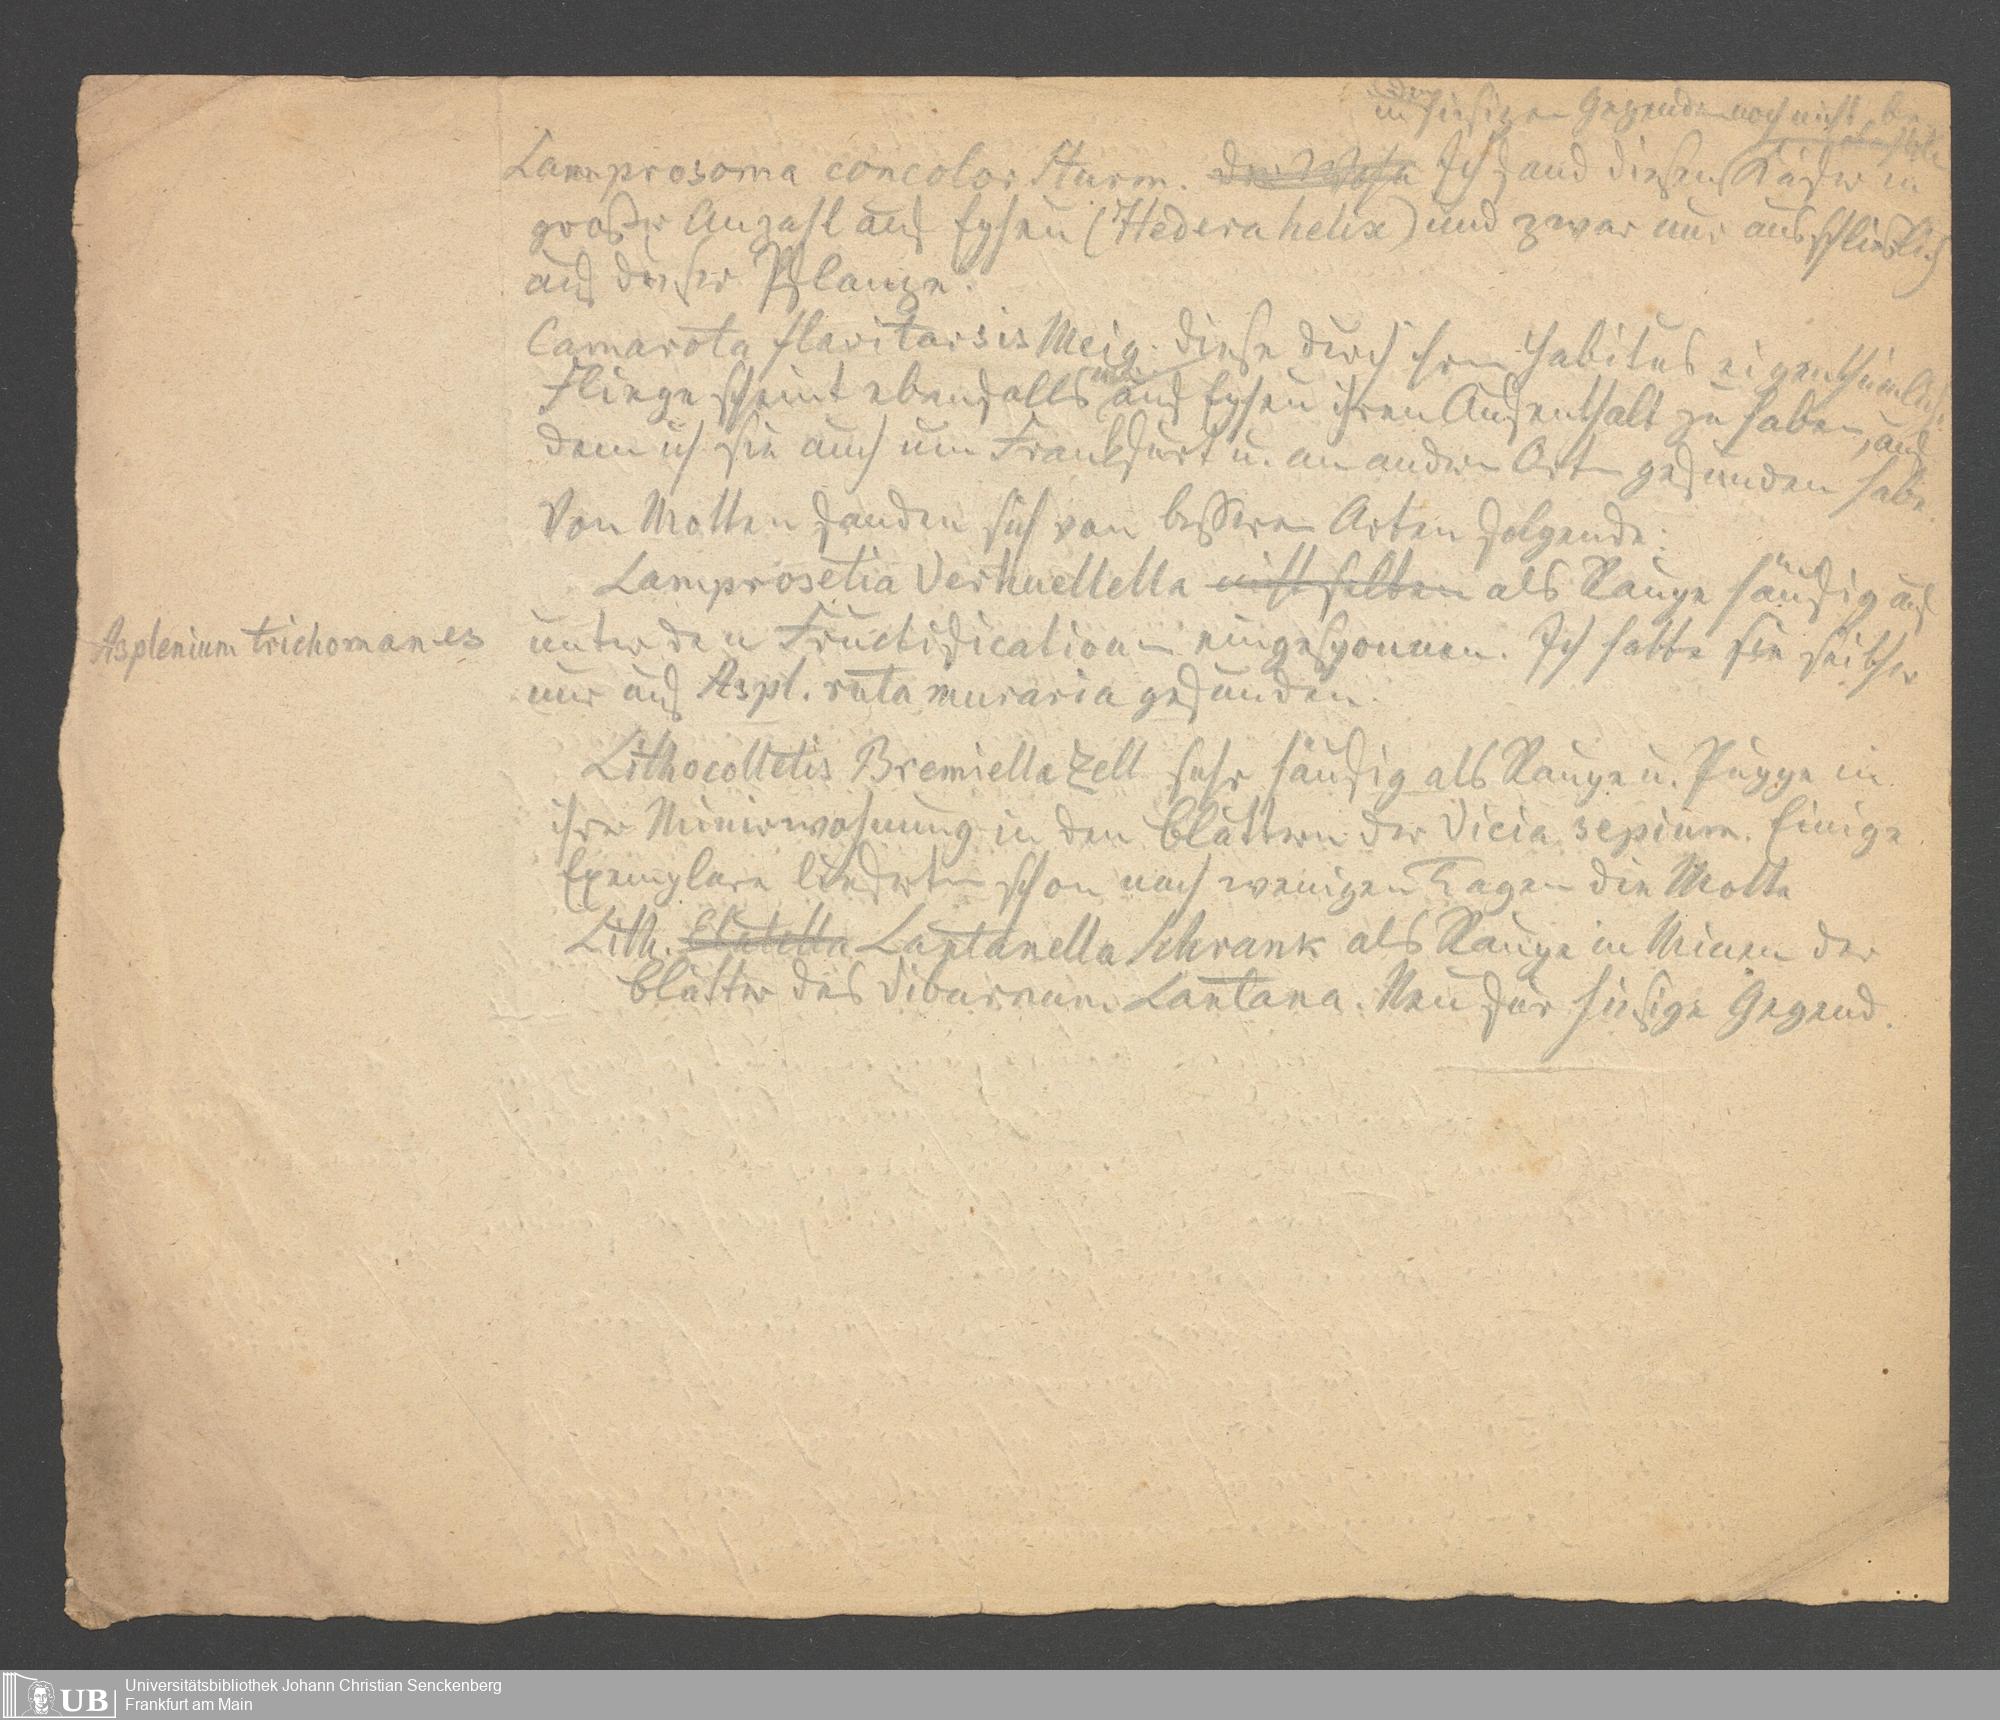 in hiesigen Gegenden noch nicht be
obachtete
Lamprosoma concolor Sturm. Ich fand diesen Käfer in
großer Anzahl auf Epheu (Hedera helix) und zwar nur ausschließlich
auf dieser Pflanze.
Camarota flavitarsis Meig. Diese durch ihren Habitus eigenthümliche
Fliege scheint ebenfalls nur auf Epheu ihren Aufenthalt zu haben, auf
dem ich sie auch um Frankfurt u. an andern Orten gefunden habe.
Von Motten fanden sich von besseren Arten folgende:
Lamprosetia Verhuellella nicht selten als Raupe häufig auf
Asplenium trichomanes
unter den Fructificationen eingesponnen. Ich hatte sie seither
nur auf Aspl. ruta muraria gefunden.
Lithocolletis Bremiella Zell sehr häufig als Raupe u. Puppe in
ihrer Minirwohnung in den Blättern der Vicia sepium. Einige
Exemplare lieferten schon nach wenigen Tagen die Motte
Lith. Lantanella Schrank als Raupe in Minen der
Blätter des Viburnum Lantana. Neu für hiesige Gegend.
UB
Universitätsbibliothek Johann Christian Senckenberg
Frankfurt am Main